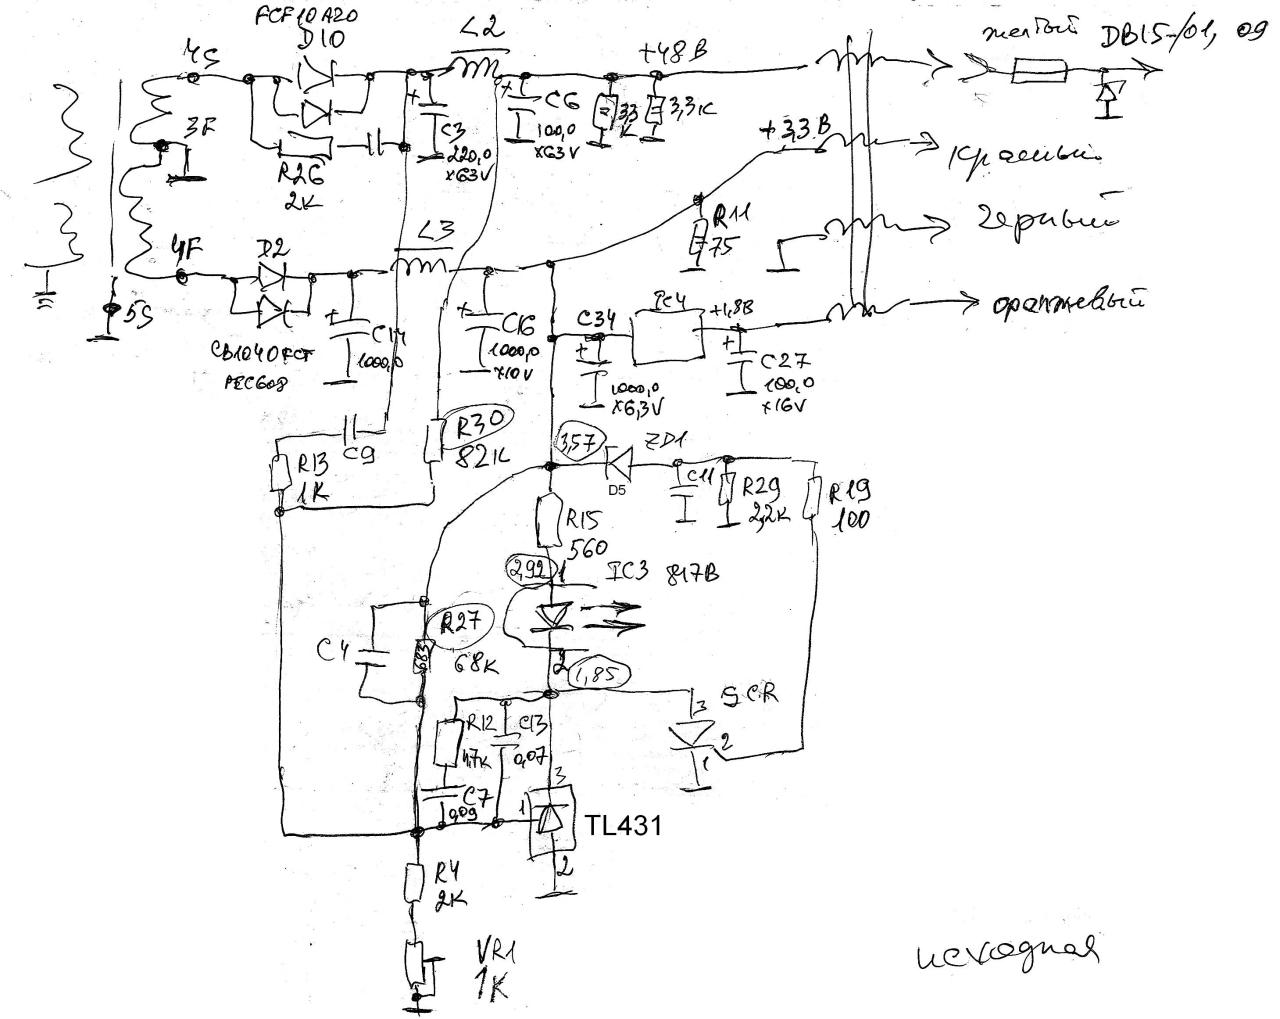 FCF10A20
D10
4S
3F
R26
2K
L2
C3
220,0
x63V
C6
100,0
x63V
+48В
3,3
К
3,3К
желтый DB15-/01, 09
+3,3В
красный
R11
75
черный
оранжевый
4F
5S
D2
CB1040FCT
C14
1000,0
L3
C16
1000,0
x10V
C34
1000,0
x6,3V
IC4
+1,8В
C27
100,0
x16V
C9
R13
1K
R30
82K
3,57
ZD1
D5
C11
R29
2,2K
R19
100
R15
560
2,92
1
IC3 817B
2
1,85
C4
R27
683
68K
R12
4,7K
C13
0,07
C7
0,09
3
SCR
2
1
3
1
2
TL431
R4
2K
VR1
1K
исходная